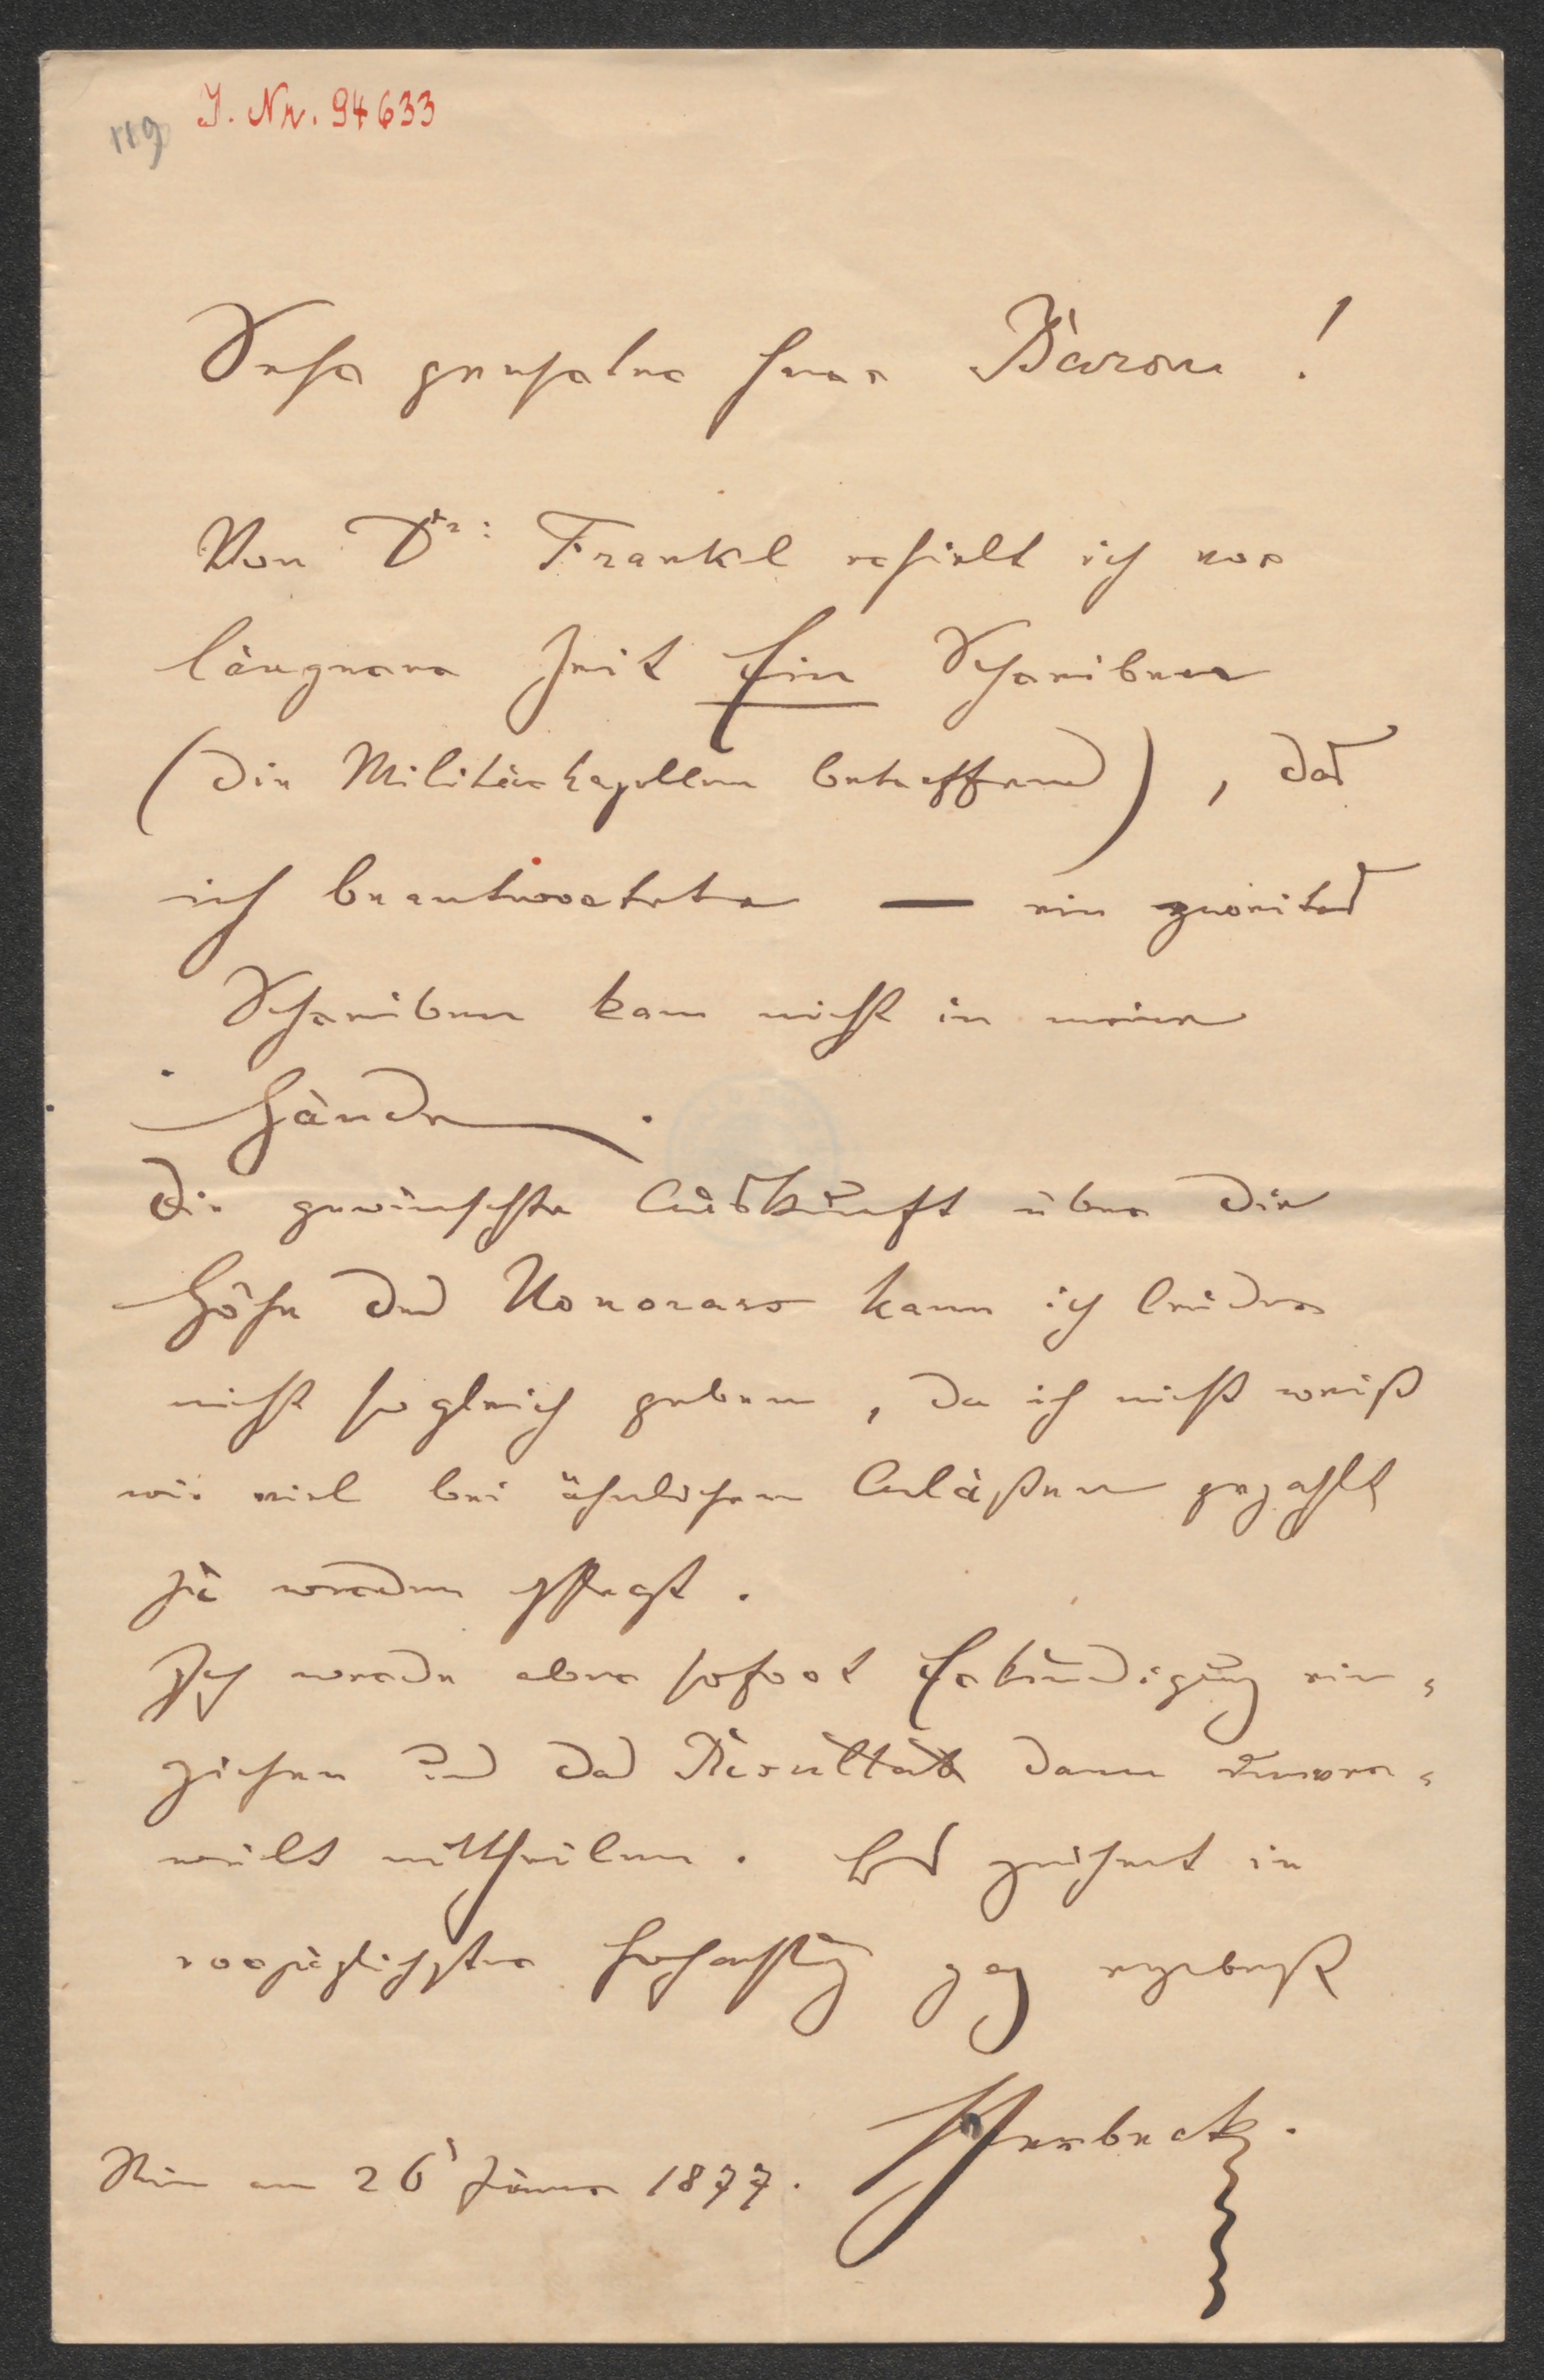 119
I. Nr. 94633
Sehr geehrter Herr Baron!
Von Dr: Frankl erhielt ich vor
längerer Zeit Ein Schreiben
(die Militärkapellen betreffend), das
ich beantwortete — ein zweites
Schreiben kam nicht in meine
Hände.
Die gewünschte Auskunft über die
Höhe des Honorars kann ich leider
nicht sogleich geben, da ich nicht weiß
wie viel bei ähnlichen Anläßen gezahlt
zu werden pflegt.
Ich werde aber sofort Erkundigung ein=
ziehen und das Resultat dann unver=
weilt mittheilen. Es zeichnet in
vorzüglichster Hochachtung ganz ergebenst
Herbeck.
Wien am 26 Jänner 1877.